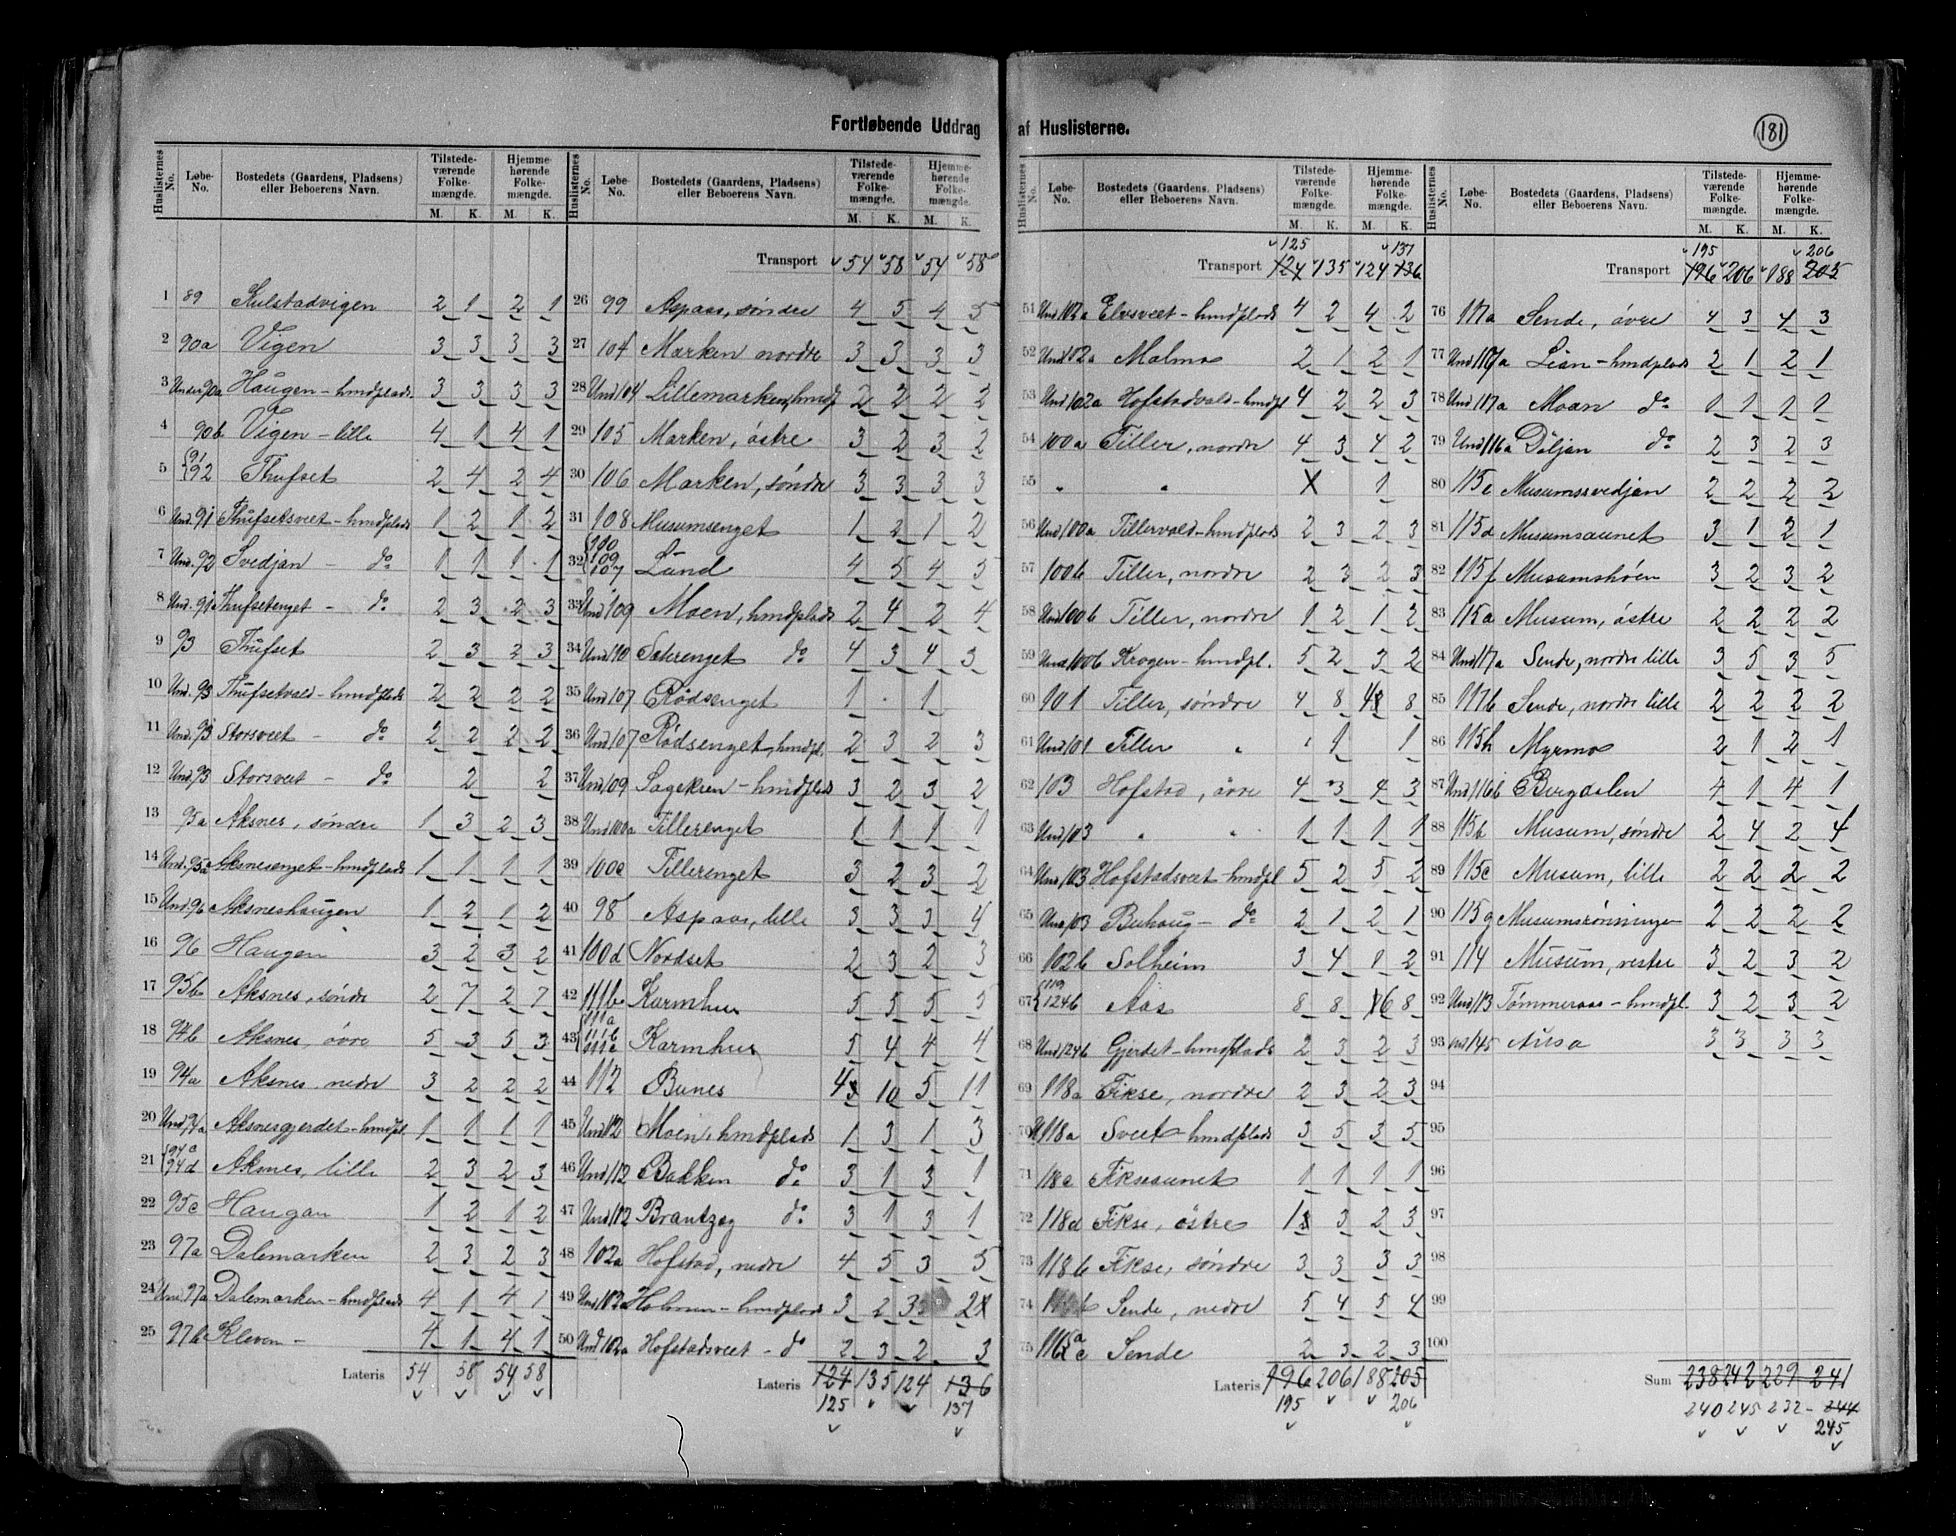 Fortløbende Uddrag af Huslisterne.
181
Huslisternes No. Løbe-No. Bostedets (Gaardens, Pladsens) eller Beboerens Navn. Tilstedeværende Folkemængde. M. K. Hjemmehørende Folkemængde. M. K.
1 89 Kulstadvigen 2 1 2 1
2 90a Vigen 3 3 3 3
3 Under 90a Haugen - hmdplads 3 3 3 3
4 90b Vigen - lille 4 1 4 1
5 91 92 Thufset 2 4 2 4
6 Und. 91 Thufsetsveet - hmdplads 1 2 1 2
7 Und. 92 Svedjan - do 1 1 1 1
8 Und. 91 Thufsetenget - do 2 3 2 3
9 93 Thufset 2 3 2 3
10 Und. 93 Thufsetvald - hmdplads 2 2 2 2
11 Und. 93 Storsveet - do 2 2 2 2
12 Und. 93 Storsveet - do 2 2
13 95a Aksnes, søndre 1 3 2 3
14 Und. 95a Aksnesenget - hmdplads 1 1 1 1
15 Und 96 Aksneshaugen 1 2 1 2
16 96 Haugen 3 2 3 2
17 95b Aksnes, søndre 2 7 2 7
18 94b Aksnes, øvre 5 3 5 3
19 94a Aksnes nedre 3 2 2 2
20 Und 94a Aksnesgjerdet - hmdpl 1 1 1 1
21 94c 94d Aksnes, lille 2 3 2 3
22 95c Haugan 1 2 1 2
23 97a Dalemarken 2 3 2 3
24 Und. 97a Dalemarken - hmdplads 4 1 4 1
25 97b Kleven - 4 1 4 1
Lateris 54 58 54 58
Huslisternes No. Løbe-No. Bostedets (Gaardens, Pladsens) eller Beboerens Navn. Tilstedeværende Folkemængde. M. K. Hjemmehørende Folkemængde. M. K.
Transport 54 58 54 58
26 99 Aspaas, søndre 4 5 4 5
27 104 Marken nordre 3 3 3 3
28 Und 104 Lillemarken, hmdp 2 2 2 2
29 105 Marken, østre 3 2 3 2
30 106 Marken, søndre 3 3 3 3
31 108 Musumsenget 1 2 1 2
32 110 109 107 Lund 4 5 4 5
33 Und 109 Moen, hmdplads 2 4 2 4
34 Und 110 Sæterenget do 4 3 4 3
35 Und 107 Rødsenget 1 . 1
36 Und 107 Rødsenget, hmdpl. 2 3 2 3
37 Und 109 Sagekren - hmdplads 3 2 3 2
38 Und 100a Tillerenget 1 1 1 1
39 100c Tillerenget 3 2 3 2
40 98 Aspaas, lille 3 3 3 4
41 100d Nordset 2 3 2 3
42 111b Karmhus 5 5 5 5
43 111a 111b 111c Karmhus 5 4 4 4
44 112 Bunes 4 10 5 11
45 Und 112 Moen, hmdplads 1 3 1 3
46 Und 112 Bakken do 3 1 3 1
47 Und 112 Brantzæg do 3 1 3 1
48 102a Hofstad, nedre 4 5 3 5
49 Und 102a Holmen - hmdplads 3 2 3 2
50 Und 102a Hofstadsveet - do 2 3 2 3
Lateris 124 135 124 136
125 137
Huslisternes No. Løbe-No. Bostedets (Gaardens, Pladsens) eller Beboerens Navn. Tilstedeværende Folkemængde. M. K. Hjemmehørende Folkemængde. M. K.
125 137
Transport 124 135 124 136
51 Und 102a Elvsveet - hmdplads 4 2 4 2
52 Und 102a Malmo 2 1 2 1
53 Und 102a Hofstadvald - hmdpl 4 2 2 3
54 100a Tiller, nordre 4 3 4 2
55 " " X 1
56 Und 100a Tillervald - hmdplads 2 3 2 3
57 100b Tiller, nordre 2 3 2 3
58 Und 100b Tiller, nordre 1 2 1 2
59 Und 100b Krogen - hmdpl. 5 2 3 2
60 101 Tiller, søndre 4 8 4 8
61 Und 101 Tiller " 1 1
62 103 Hofstad, øvre 4 3 4 3
63 Und 103 " " 1 1 1 1
64 Und 103 Hofstadsveet - hmdpl 5 2 5 2
65 Und 103 Buhaug - do 2 1 2 1
66 102b Solheim 3 4 1 2
67 119 124b Aas 8 8 6 8
68 Und 124b Gjerdet - hmdplads 2 3 2 3
69 118a Fikse, nordre 2 3 2 3
70 U 118a Sveet - hmdplads 3 5 3 5
71 118c Fiksesaunet 1 1 1 1
72 118d Fikse, østre 1 3 2 3
73 118b Fikse, søndre 3 3 3 3
74 Sende, nedre 5 4 5 4
75 116a c Sende 2 3 2 3
Lateris 196 206 188 205
195 206
Huslisternes No. Løbe-No. Bostedets (Gaardens, Pladsens) eller Beboerens Navn. Tilstedeværende Folkemængde. M. K. Hjemmehørende Folkemængde. M. K.
195 206
Transport 196 206 188 205
76 117a Sende, øvre 4 3 4 3
77 Und 117a Lian - hmdplads 2 1 2 1
78 Und 117a Moan do 1 1 1 1
79 Und 116a Døljan do 2 3 2 3
80 115e Musumssvedjan 2 2 2 2
81 115d Musumsaunet 3 1 2 1
82 115f Musumshøen 3 2 3 2
83 115a Musum, østre 2 2 2 2
84 Und 117a Sende, nordre lille 3 5 3 5
85 117b Sende, nordre lille 2 2 2 2
86 115h Myrmo 2 1 2 1
87 Und 116b Bergdalen 4 1 4 1
88 115b Musum, søndre 2 4 2 4
89 115c Musum, lille 2 2 2 2
90 115g Musumsrønningen 2 2 2 2
91 114 Musum, vestre 3 2 3 2
92 Und 113 Tømmeraas - hmdpl. 3 2 3 2
93 145 Aursa 3 3 3 3
94
95
96
97
98
99
100
Sum 238 242 229 241
240 245 232 244
245